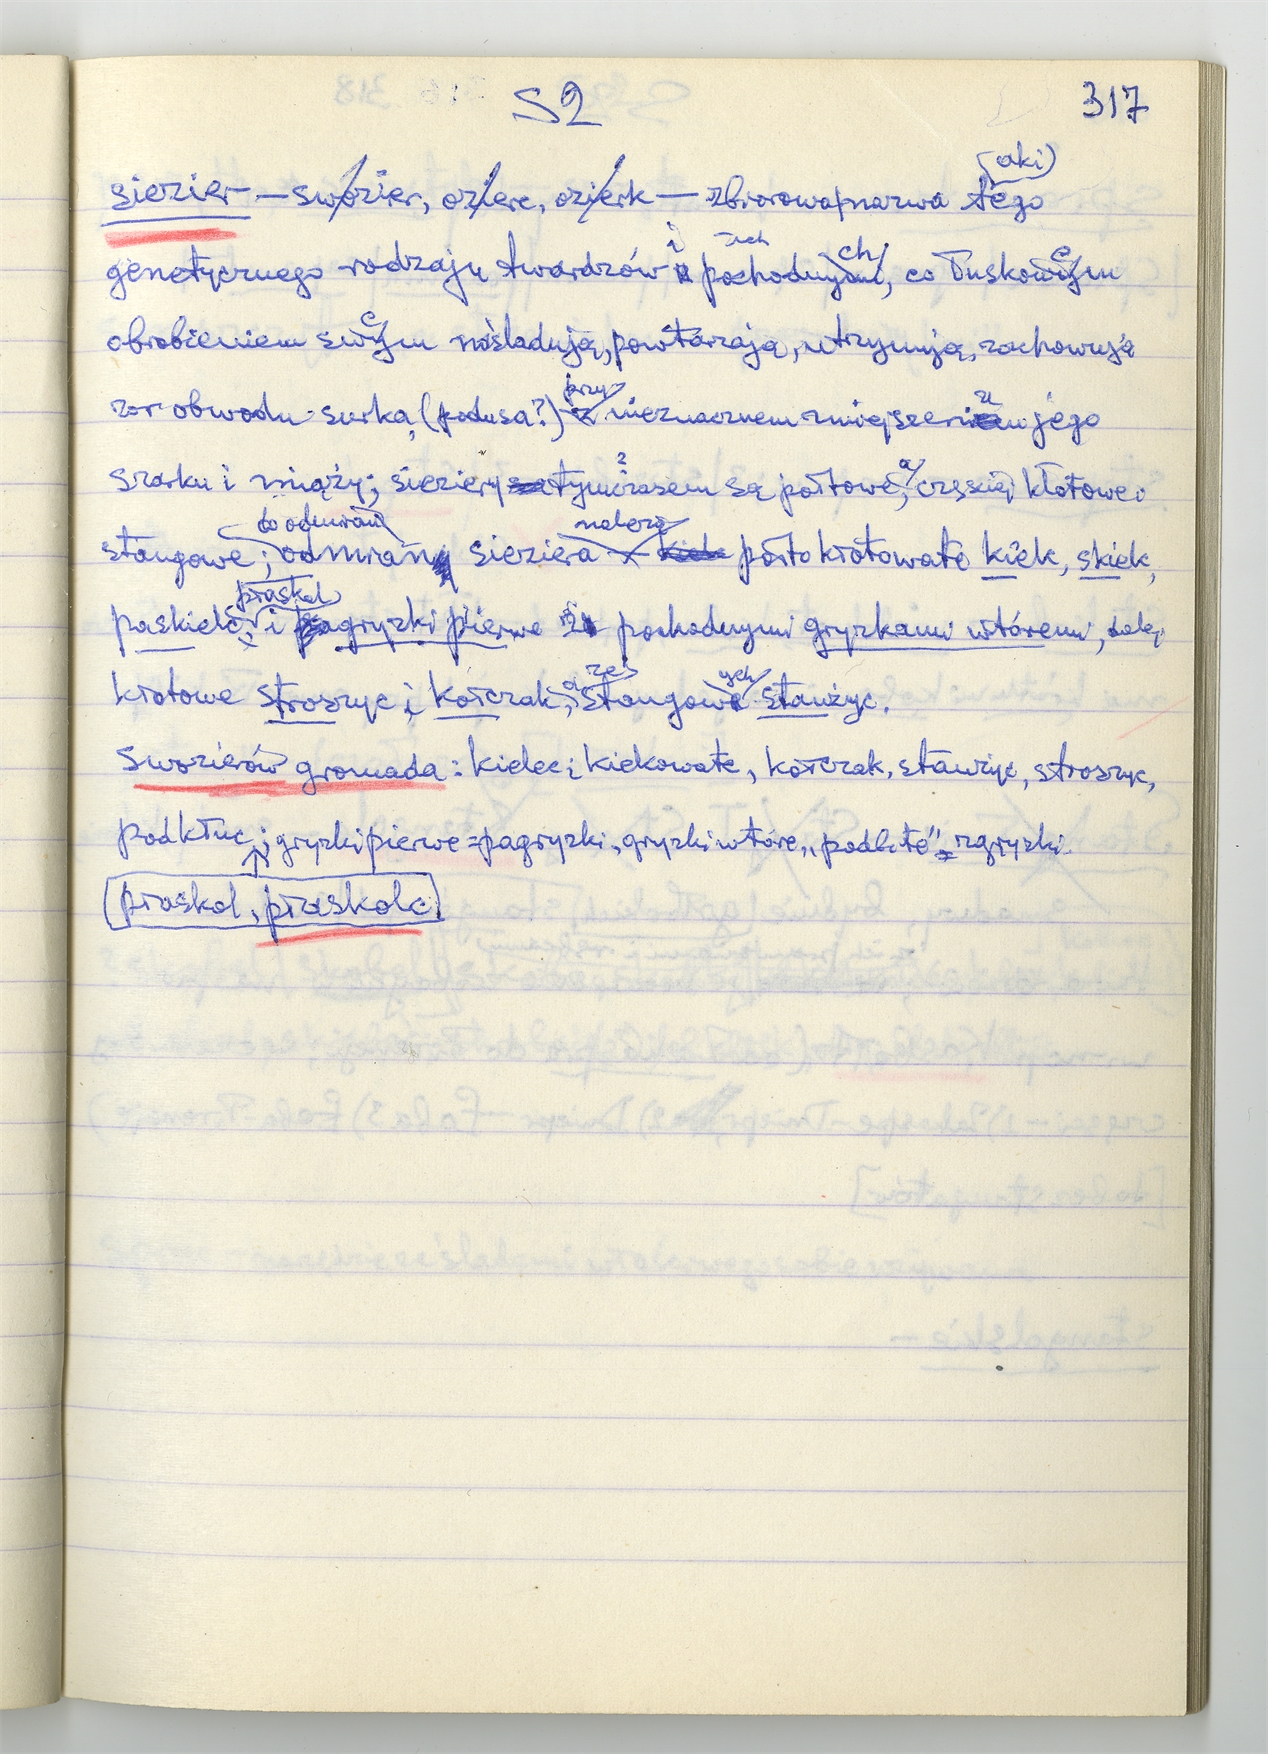 S2 317
(aki)
siezier — swozier, oziere, ozierk — zbiorowa nazwa tego
genetycznego rodzaju twardzów i pochodnych, co łuskowem
obrobieniem swem naśladują, powtarzają, utrzymują, zachowują
zar obwodu surka, (podusa?) przy nieznacznem zmiejszeniu jego
szarku i miąży; sieziery tymczasem są połtowe, a częściej kłotowe i
do odmian należą
stangowe; odmiany sieziera połtokłotowate kiek, skiek,
praskol
paskielc, i pagryzki pierwe z pochodnymi gryzkami wtóremi, dalej
kłotowe stroszyc i kołczak, a zaś stangowych stawżyc.
swozierów gromada: kielec i kiekowate, kołczak, stawżyc, stroszyc,
podkłuc; gryzki pierwe = pagryzki, gryzki wtóre, „podlete" = zgryzki.
praskol, praskolc